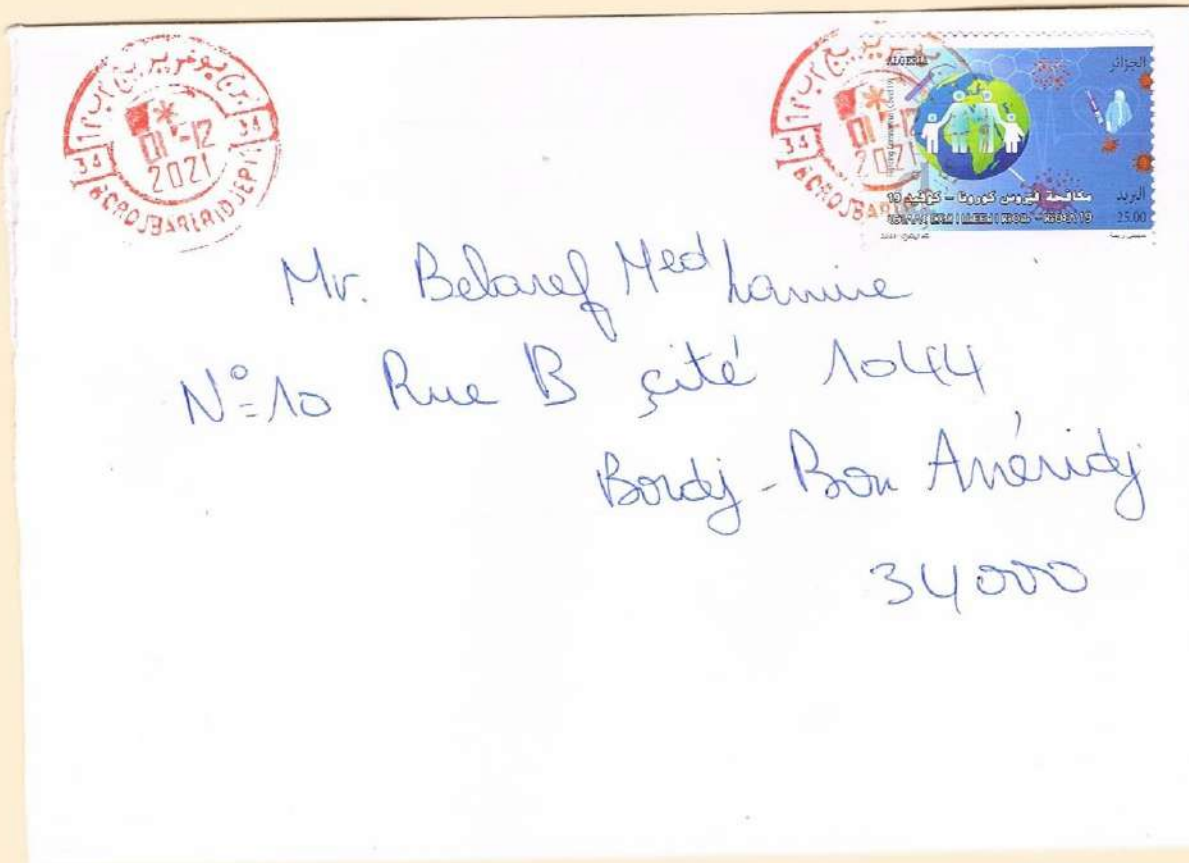 برج بوعريريج
34 34
01-12
2021
BORDJ BARIRIDJ EP
ALGERIA
الجزائر
01-12
2021
مكافحة فيروس كورونا - كوفيد 19
البريد
25.00
Mr. Belaref Med Lamine
N°=10 Rue B çité 1044
Bordj-Bou Arréridj
34000